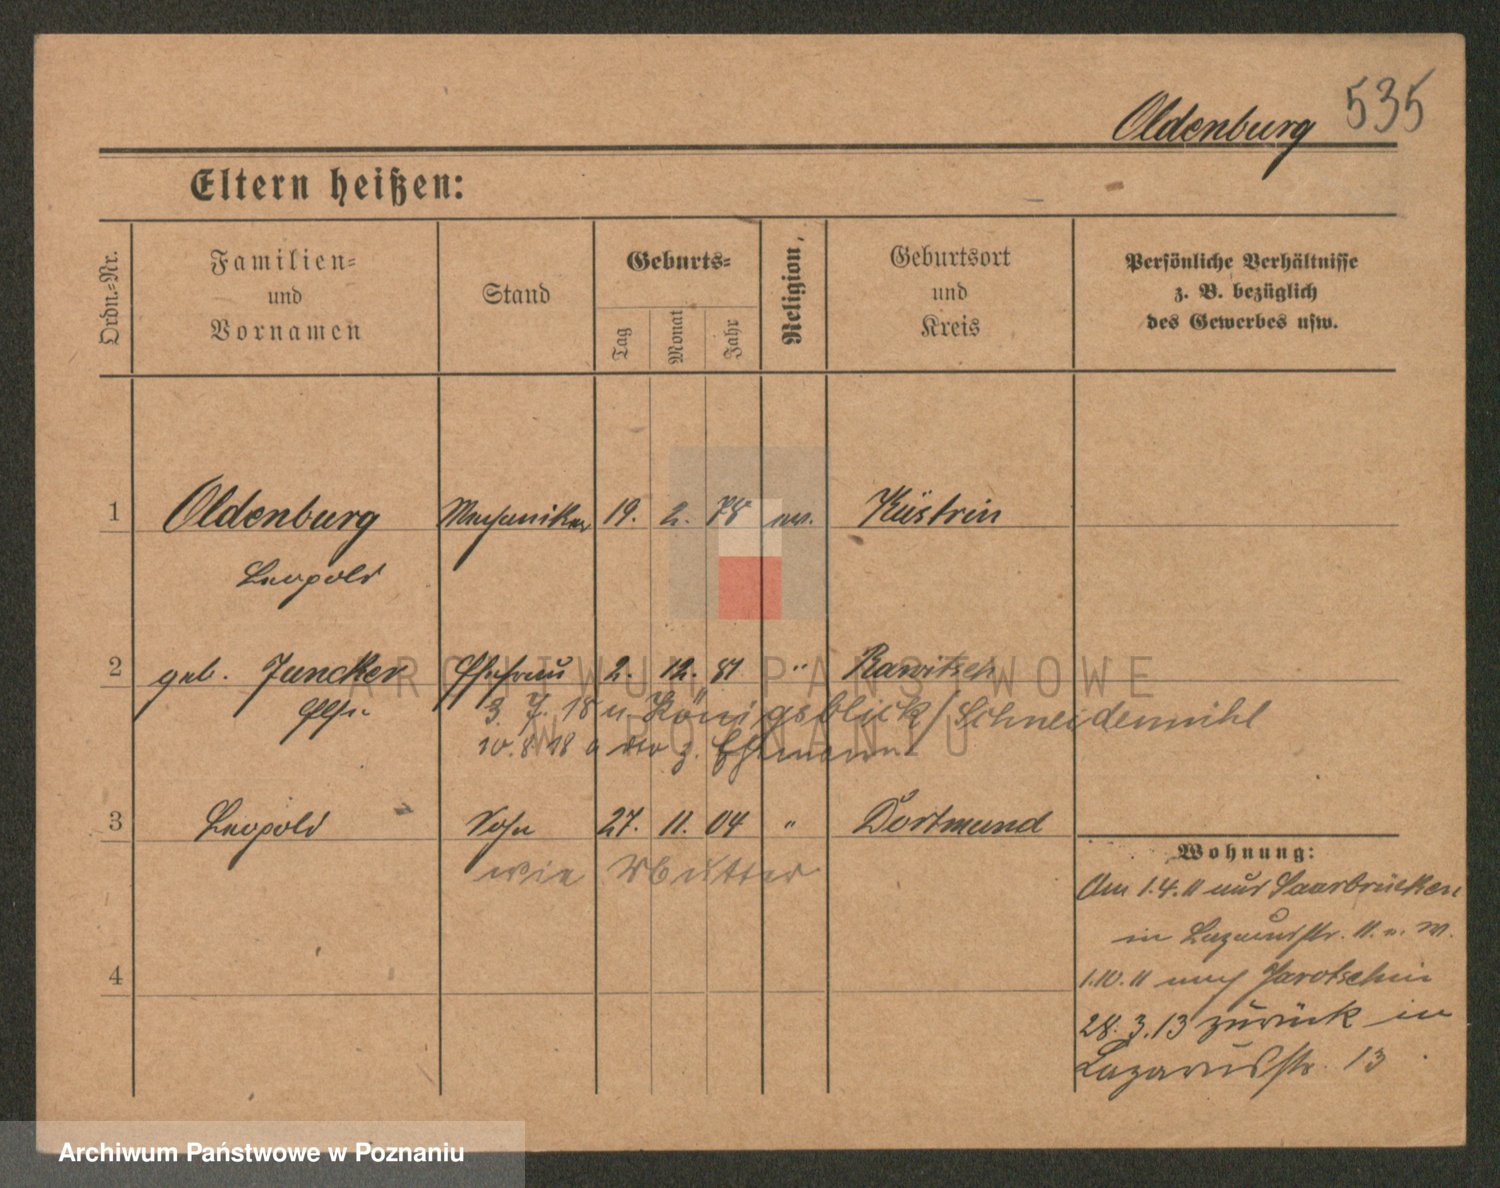 Oldenburg 535
Eltern heißen:
Ordn.-Nr.
Familien- und Vornamen
Stand
Geburts-
Tag
Monat
Jahr
Religion,
Geburtsort und Kreis
Persönliche Verhältnisse z. B. bezüglich des Gewerbes usw.
1 Oldenburg Mechaniker 19. 2. 78 ev. Küstrin
Leopold
2 geb. Juncker Ehefrau 2. 12. 81 " Rawitsch
Else 3. 7. 18 n. Königsblick/Schneidemühl
10. 8. 18 z. Ehemann
3 Leopold Sohn 27. 11. 04 " Dortmund
wie Mutter
4
Wohnung:
Am 1.4.11 aus Saarbrücken
in Lazarusstr. 11.
1.10.11 nach Jarotschin
28.3.13 zurück in
Lazarusstr. 13
ARCHIWUM PAŃSTWOWE
W POZNANIU
Archiwum Państwowe w Poznaniu